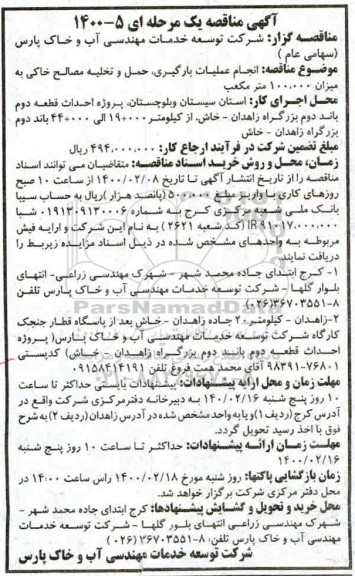 آگهی مناقصه یک مرحله ای ۵-۱۴۰۰
مناقصه گزار: شرکت توسعه خدمات مهندسی آب و خاک پارس
(سهامی عام)
موضوع مناقصه: انجام عملیات بارگیری، حمل و تخلیه مصالح خاکی به
میزان ۱۰۰،۰۰۰ متر مکعب
محل اجرای کار: استان سیستان وبلوچستان، پروژه احداث قطعه دوم
باند دوم بزرگراه زاهدان - خاش، از کیلومتر ۰۰۰+۱۹ الی ۰۰۰+۴۴ باند دوم
بزرگراه زاهدان - خاش
مبلغ تضمین شرکت در فرآیند ارجاع کار: ۴۹۴،۰۰۰،۰۰۰ ریال
زمان، محل و روش خرید اسناد مناقصه: متقاضیان می توانند اسناد
مناقصه را از تاریخ انتشار آگهی تا تاریخ ۱۴۰۰/۰۲/۰۸ از ساعت ۱۰ صبح
روزهای کاری با واریز مبلغ ۵۰۰،۰۰۰ (پانصد هزار) ریال به حساب سیبا
بانک ملی شعبه مرکزی کرج به شماره ۰۱۹۱۳۰۹۱۳۰۰۰۶ شبا
(کد شعبه ۲۶۲۱) به نام این شرکت و ارایه فیش
مربوطه به واحدهای مشخص شده در ذیل اسناد مزایده زیربط را
دریافت نمایند.
۱- کرج ابتدای جاده محمد شهر - شهرک مهندسی زراعی- انتهای
بلوار گلها - شرکت توسعه خدمات مهندسی آب و خاک پارس تلفن
۸-۳۶۷۰۳۵۵۱(۰۲۶)
۲-زاهدان - کیلومتر ۲۰ جاده زاهدان - خاش بعد از پاسگاه قطار خنجک
کارگاه شرکت توسعه خدمات مهندسی آب و خاک پارس( پروژه
احداث قطعه دوم باند دوم بزرگراه زاهدان - خاش) کدپستی
۷۶۸۰۱-۹۸۳۹۱ آقای محمد همت فروغ تلفن ۰۹۱۵۸۴۱۴۱۹۱
مهلت زمان و محل ارایه پیشنهادات: پیشنهادات بایستی حداکثر تا ساعت
۱۰ روز پنج شنبه ۱۴۰/۰۲/۱۶ به دبیرخانه دفترمرکزی شرکت واقع در
آدرس کرج (ردیف ۱) و یا به واحد مشخص شده در آدرس زاهدان (ردیف ۲) به شرح
فوق با اخذ رسید تحویل گردد.
مهلت زمان ارائه پیشنهادات: حداکثر تا ساعت ۱۰ روز پنج شنبه
۱۴۰۰/۰۲/۱۶
زمان بازگشایی پاکتها: روز شنبه مورخ ۱۴۰۰/۰۲/۱۸ راس ساعت ۱۴:۰۰ در
محل دفتر مرکزی شرکت برگزار خواهد شد.
محل خرید و تحویل و گشایش پیشنهادها: کرج ابتدای جاده محمد شهر -
شهرک مهندسی زراعی انتهای بلوار گلها - شرکت توسعه خدمات
مهندسی آب و خاک پارس تلفن: ۸-۳۶۷۰۳۵۵۱ (۰۲۶)
شرکت توسعه خدمات مهندسی آب و خاک پارس
ParsNamadData